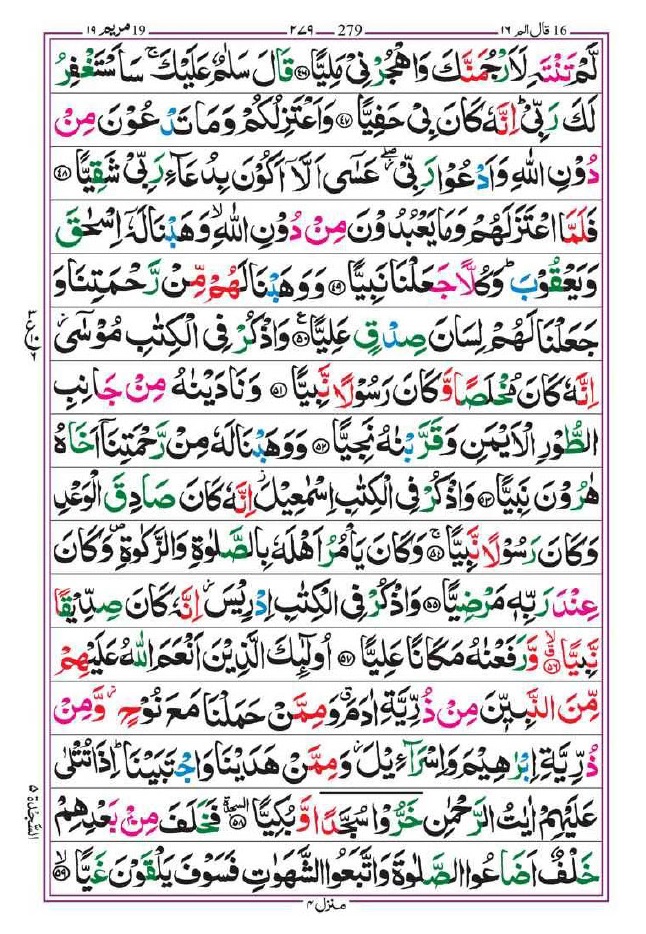 مريم ١٩ 19 ٢٧٩ 279 قال الم ١٦ 16
لَّمْ تَنْتَهِ لَاَرْجُمَنَّكَ وَاهْجُرْنِيْ مَلِيًّا ﴿۴۶﴾ قَالَ سَلٰمٌ عَلَيْكَ ۚ سَاَسْتَغْفِرُ
لَكَ رَبِّيْ ؕ اِنَّهٗ كَانَ بِيْ حَفِيًّا ﴿۴۷﴾ وَاَعْتَزِلُكُمْ وَمَا تَدْعُوْنَ مِنْ
دُوْنِ اللّٰهِ وَاَدْعُوْا رَبِّيْ ۖ عَسٰٓى اَلَّاۤ اَكُوْنَ بِدُعَآءِ رَبِّيْ شَقِيًّا ﴿۴۸﴾
فَلَمَّا اعْتَزَلَهُمْ وَمَا يَعْبُدُوْنَ مِنْ دُوْنِ اللّٰهِ ۙ وَهَبْنَا لَهٗۤ اِسْحٰقَ
وَيَعْقُوْبَ ؕ وَكُلًّا جَعَلْنَا نَبِيًّا ﴿۴۹﴾ وَوَهَبْنَا لَهُمْ مِّنْ رَّحْمَتِنَا وَ
جَعَلْنَا لَهُمْ لِسَانَ صِدْقٍ عَلِيًّا ﴿۵۰﴾ وَاذْكُرْ فِي الْكِتٰبِ مُوْسٰٓى ؗ
اِنَّهٗ كَانَ مُخْلَصًا وَّكَانَ رَسُوْلًا نَّبِيًّا ﴿۵۱﴾ وَنَادَيْنٰهُ مِنْ جَانِبِ
الطُّوْرِ الْاَيْمَنِ وَقَرَّبْنٰهُ نَجِيًّا ﴿۵۲﴾ وَوَهَبْنَا لَهٗ مِنْ رَّحْمَتِنَاۤ اَخَاهُ
هٰرُوْنَ نَبِيًّا ﴿۵۳﴾ وَاذْكُرْ فِي الْكِتٰبِ اِسْمٰعِيْلَ ؗ اِنَّهٗ كَانَ صَادِقَ الْوَعْدِ
وَكَانَ رَسُوْلًا نَّبِيًّا ﴿۵۴﴾ وَكَانَ يَاْمُرُ اَهْلَهٗ بِالصَّلٰوةِ وَالزَّكٰوةِ ۪ وَكَانَ
عِنْدَ رَبِّهٖ مَرْضِيًّا ﴿۵۵﴾ وَاذْكُرْ فِي الْكِتٰبِ اِدْرِيْسَ ؗ اِنَّهٗ كَانَ صِدِّيْقًا
نَّبِيًّا ﴿۵۶﴾ وَّرَفَعْنٰهُ مَكَانًا عَلِيًّا ﴿۵۷﴾ اُولٰٓئِكَ الَّذِيْنَ اَنْعَمَ اللّٰهُ عَلَيْهِمْ
مِّنَ النَّبِيّٖنَ مِنْ ذُرِّيَّةِ اٰدَمَ ۗ وَمِمَّنْ حَمَلْنَا مَعَ نُوْحٍ ؗ وَّمِنْ
ذُرِّيَّةِ اِبْرٰهِيْمَ وَاِسْرَآءِيْلَ ؗ وَمِمَّنْ هَدَيْنَا وَاجْتَبَيْنَا ؕ اِذَا تُتْلٰى
عَلَيْهِمْ اٰيٰتُ الرَّحْمٰنِ خَرُّوْا سُجَّدًا وَّبُكِيًّا ﴿۵۸﴾ السجدة فَخَلَفَ مِنْۢ بَعْدِهِمْ
خَلْفٌ اَضَاعُوا الصَّلٰوةَ وَاتَّبَعُوا الشَّهَوٰتِ فَسَوْفَ يَلْقَوْنَ غَيًّا ﴿۵۹﴾
السَّجْدَة ۵
منزل ۴